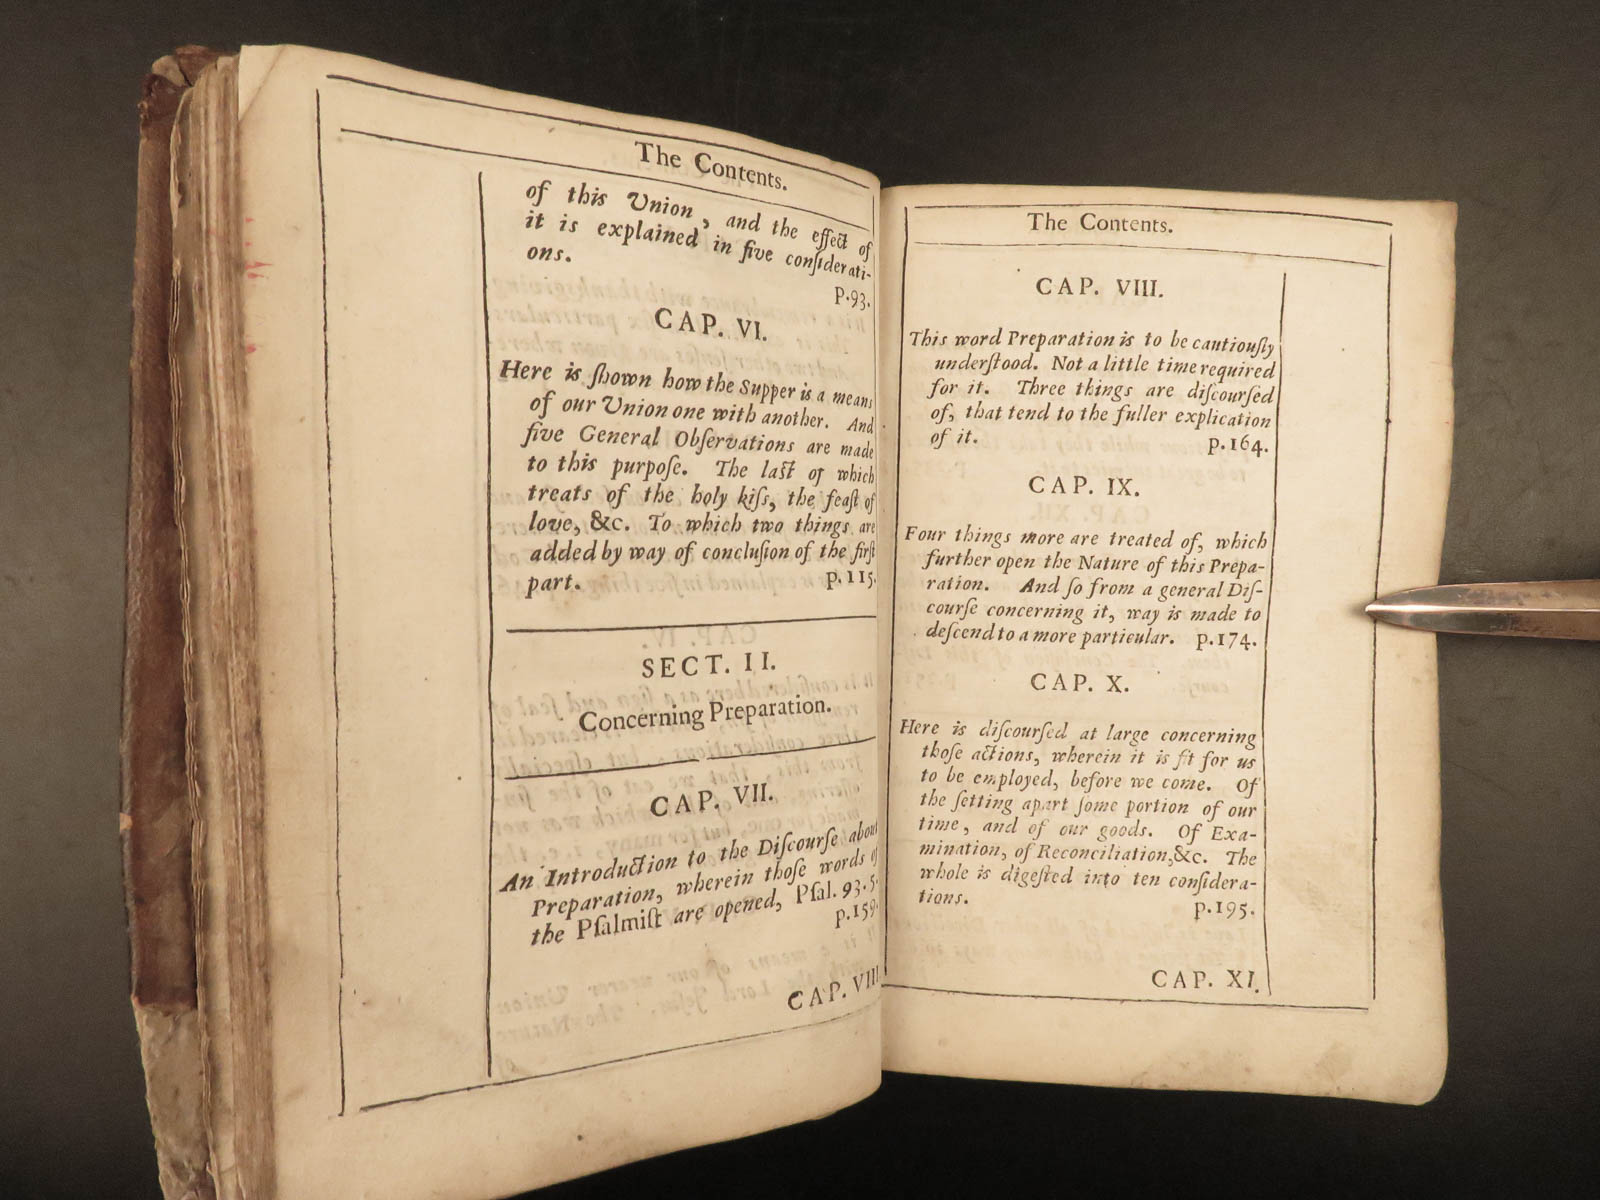 The Contents.
of this Union, and the effect of
it is explained in five considerati-
ons.
p.93.
CAP. VI.
Here is ſhown how the Supper is a means
of our Union one with another. And
five General Obſervations are made
to this purpoſe. The laſt of which
treats of the holy kiſs, the feaſt of
love, &c. To which two things are
added by way of concluſion of the firſt
part. p.115.
SECT. II.
Concerning Preparation.
CAP. VII.
An Introduction to the Diſcourſe about
Preparation, wherein thoſe words of
the Pſalmiſt are opened, Pſal. 93.5.
p.159.
CAP. VIII.
The Contents.
CAP. VIII.
This word Preparation is to be cautiouſly
underſtood. Not a little time required
for it. Three things are diſcourſed
of, that tend to the fuller explication
of it. p.164.
CAP. IX.
Four things more are treated of, which
further open the Nature of this Prepa-
ration. And ſo from a general Diſ-
courſe concerning it, way is made to
deſcend to a more particular. p.174.
CAP. X.
Here is diſcourſed at large concerning
thoſe actions, wherein it is fit for us
to be employed, before we come. Of
the ſetting apart ſome portion of our
time, and of our goods. Of Exa-
mination, of Reconciliation,&c. The
whole is digeſted into ten conſidera-
tions. p.195.
CAP. XI.